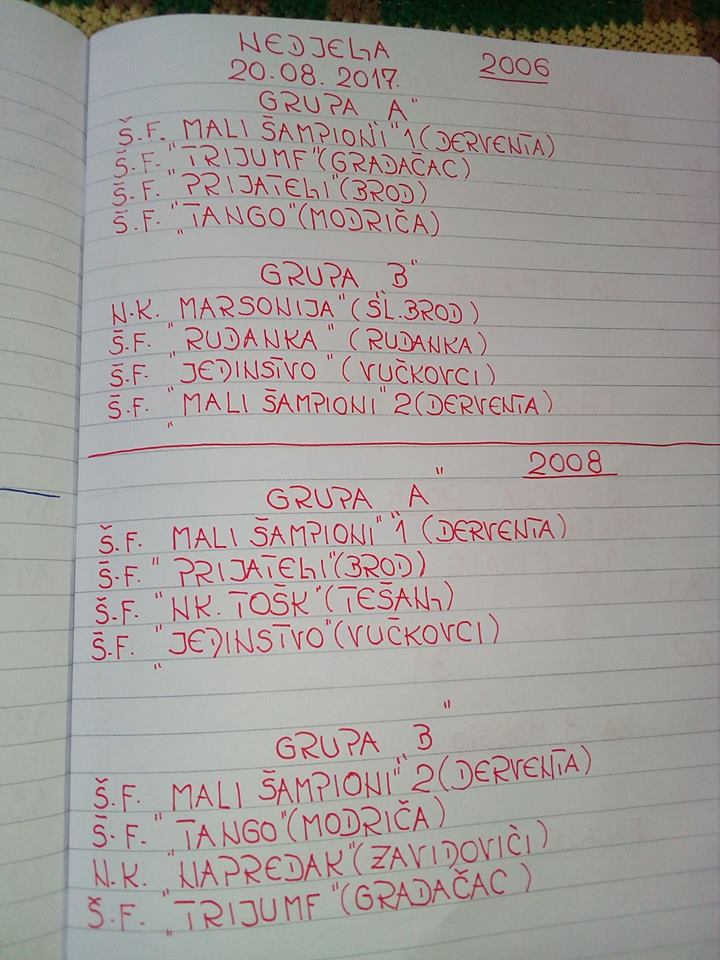 NEDJELJA
20.08.2017. 2006
GRUPA „A"
Š.F. „MALI ŠAMPIONI" 1 (DERVENTA)
Š.F. „TRIJUMF" (GRADAČAC)
Š.F. „PRIJATELJI" (BROD)
Š.F. „TANGO" (MODRIČA)
GRUPA „B"
N.K. „MARSONIJA" (SL. BROD)
Š.F. „RUDANKA" (RUDANKA)
Š.F. „JEDINSTVO" (VUČKOVCI)
Š.F. „MALI ŠAMPIONI" 2 (DERVENTA)
2008
GRUPA „A"
Š.F. „MALI ŠAMPIONI" 1 (DERVENTA)
Š.F. „PRIJATELJI" (BROD)
Š.F. „NK. TOŠK" (TEŠANJ)
Š.F. „JEDINSTVO" (VUČKOVCI)
GRUPA „B"
Š.F. „MALI ŠAMPIONI" 2 (DERVENTA)
Š.F. „TANGO" (MODRIČA)
N.K. „NAPREDAK" (ZAVIDOVIĆI)
Š.F. „TRIJUMF" (GRADAČAC)